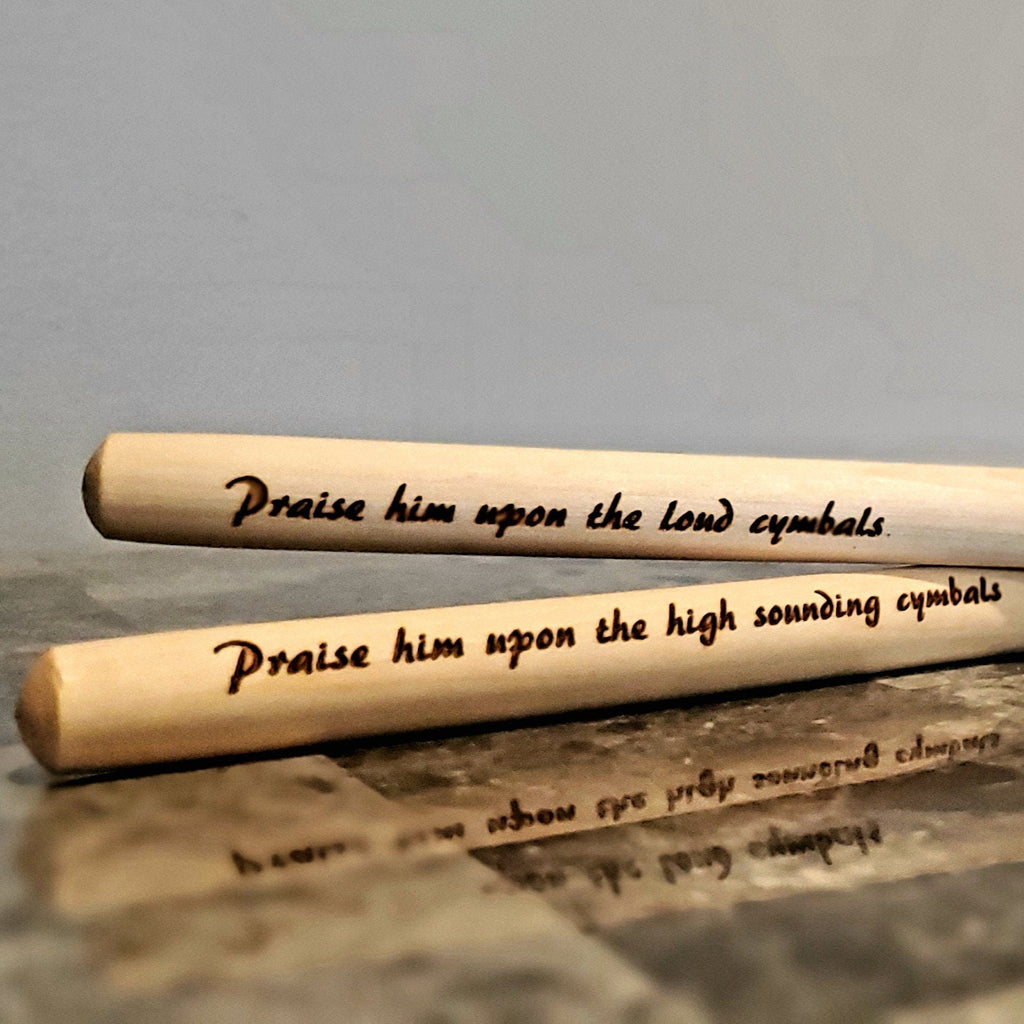 Praise him upon the loud cymbals.
Praise him upon the high sounding cymbals